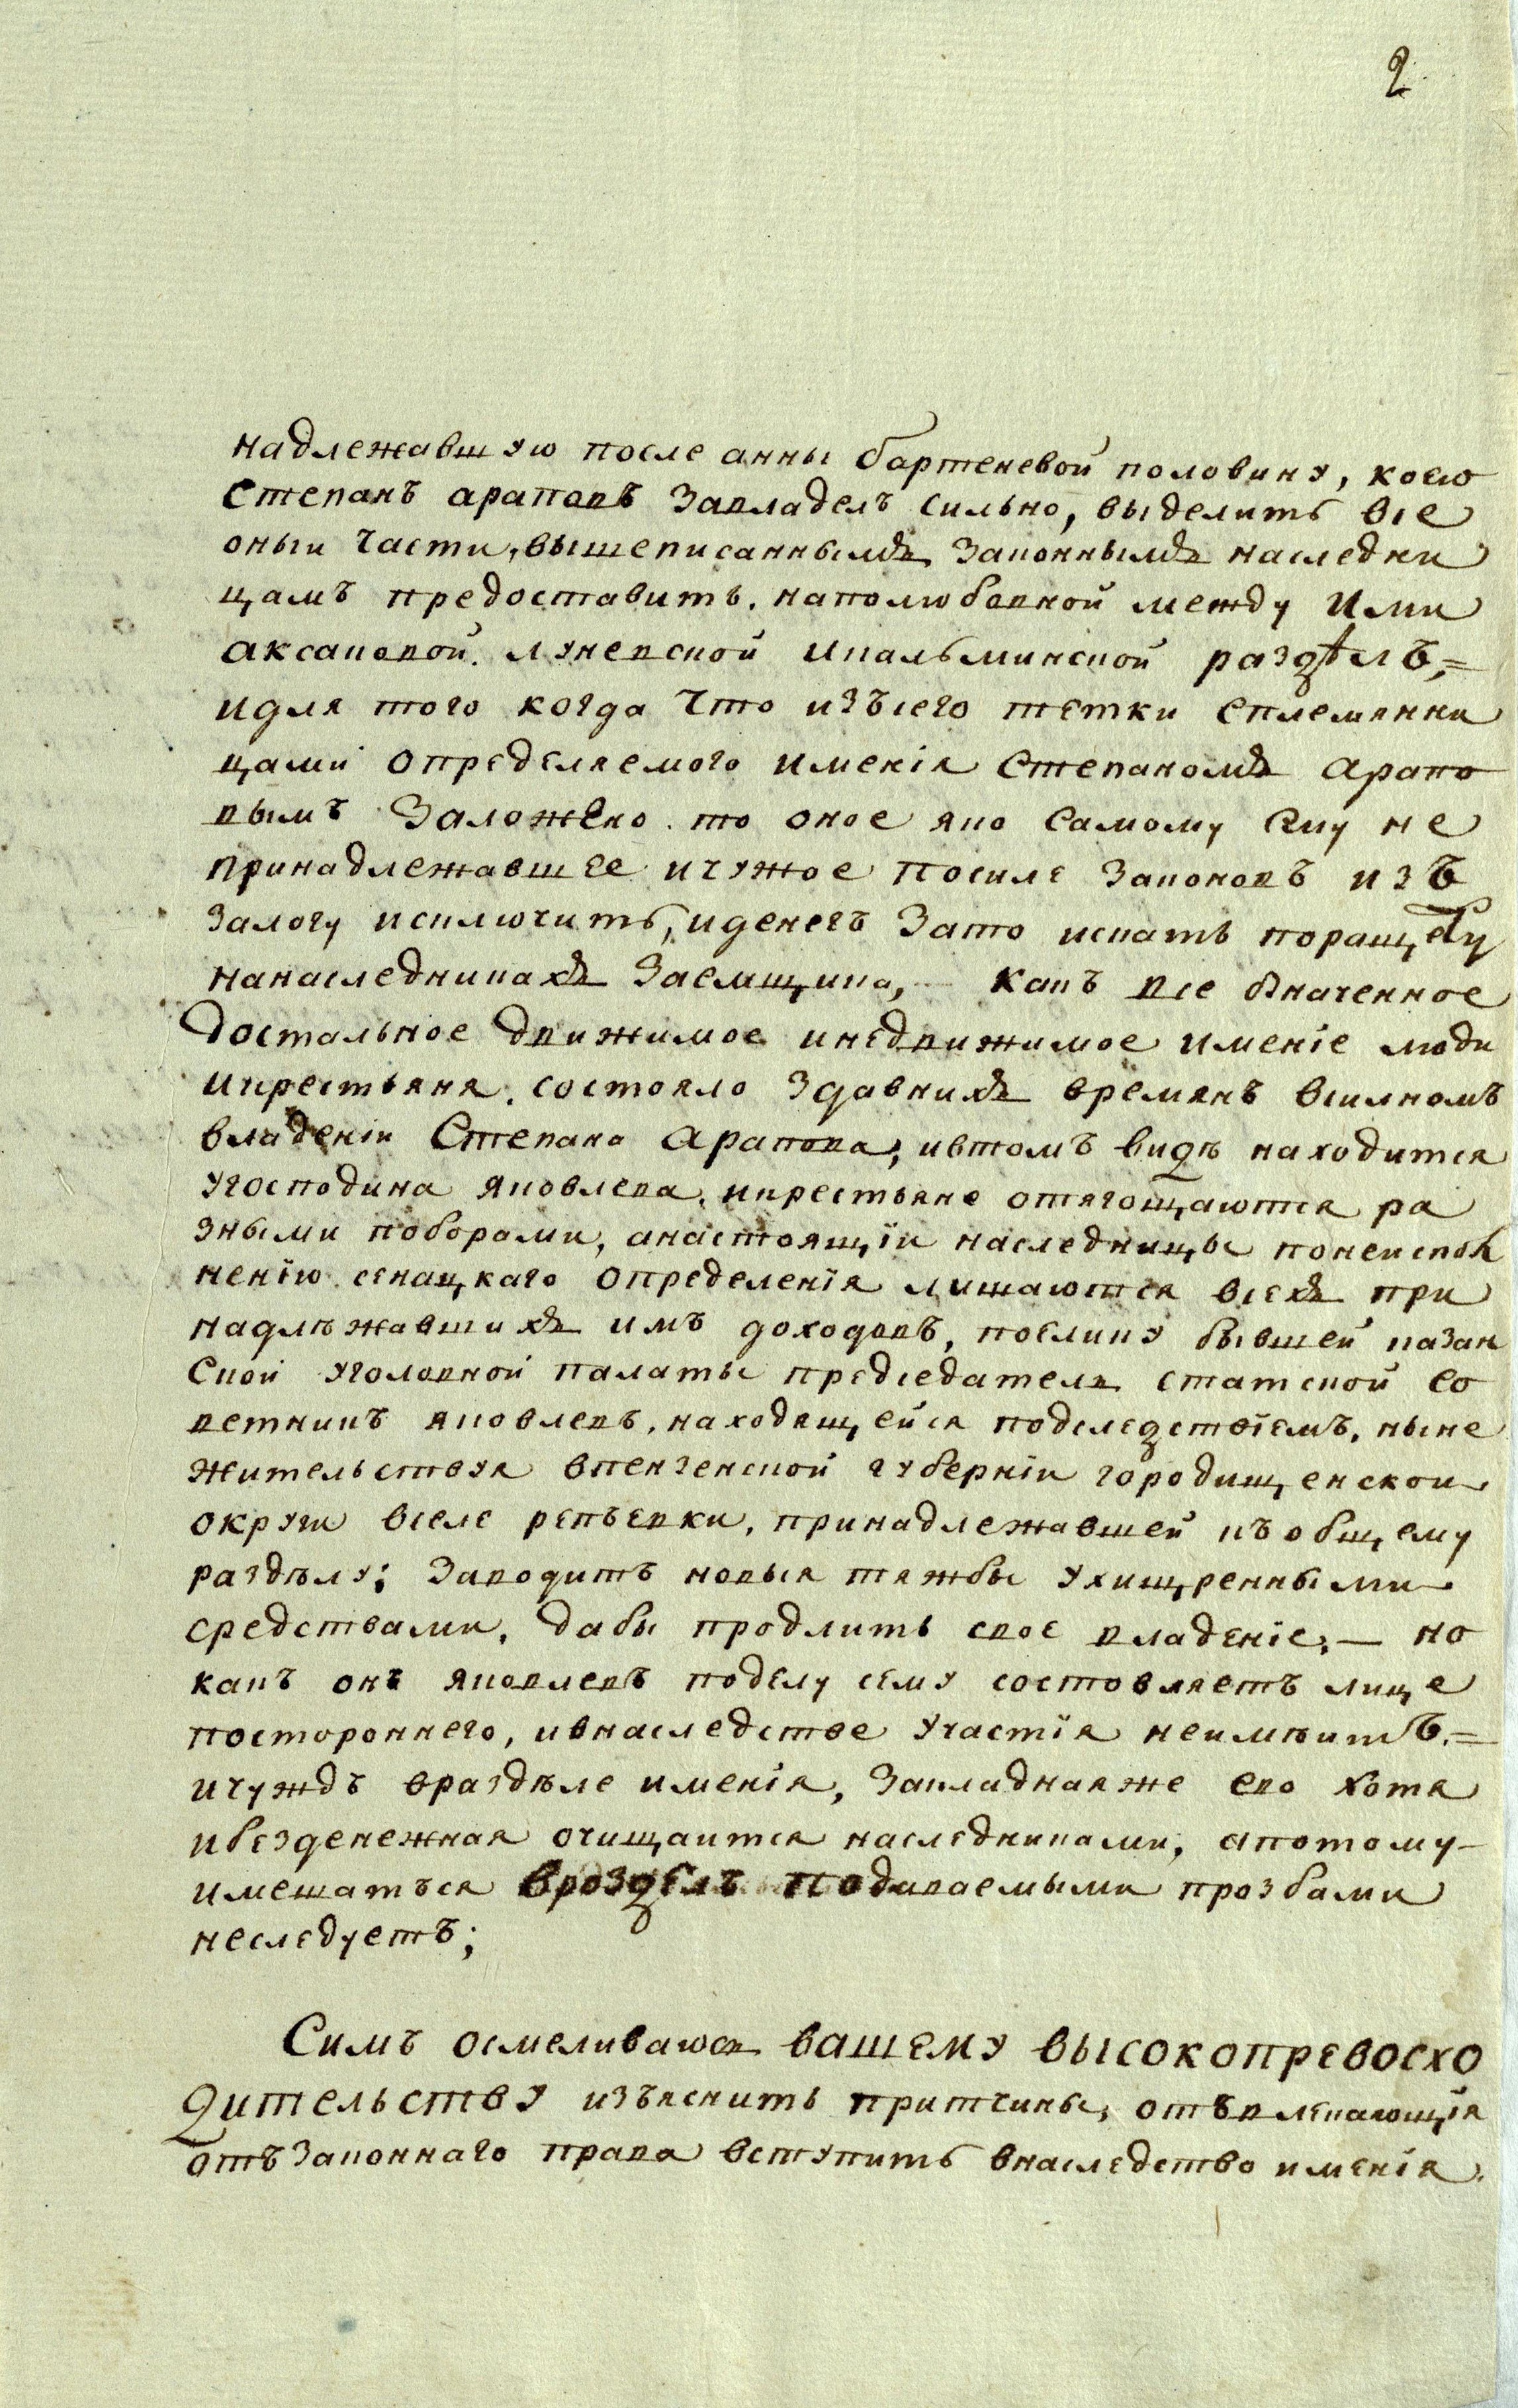 2
надлежавшую после анны бартеневой половину, коею
Степанъ араповъ завладелъ сильно, выделить все
оныи части, вышеписаннымъ законнымъ наследни
цамъ предоставить. наполюбовной между Ими
аксаковой. луневской ипальминской раздѣлъ,=
идля того когда что изъсего тетки сплемянни
цами определяемого имения Степаномъ арапо
вымъ Заложено. то оное яко самому ему не
принадлежавшее ичужое посиле законовъ изъ
залогу исключить, иденегъ Зато искать поращету
нанаследникахъ Заемщика, — какъ все означенное
достальное движимое инедвижимое именіе люди
икрестьяня. состояло Здавнихъ времянъ всилномъ
владеніи Степана арапова, ивтомъ видѣ находится
угосподина яковлева, икрестьяне отягощаются ра
зными поборами, анастоящіи наследницы понеиспол
ненію сенацкаго определенія лишаются всехъ при
надлѣжавшихъ имъ доходовъ, поелику бывшей казан
ской уголовной палаты председатель статской со
ветникъ яковлевъ, находящейся подследствіемъ, ныне
жительствуя впензенской губерніи городищенскои
округи вселе репьевки, принадлежавшей къобщему
раздѣлу; Заводитъ новыя тяжбы ухищренными
средствами, дабы продлить свое владеніе; — но
какъ онъ яковлевъ поделу сему состовляетъ лице
постороннего, ивнаследстве участія неимѣитъ.=
ичуждъ враздѣле именія, Закладнаяже ево хотя
ибезденежная очищаится наследниками, апотому
имешатъся вроздѣлъ подаваемыми прозбами
неследуетъ;
Симъ осмеливаюсь вашему высокопревосхо
дительству изъяснить притчины, отвлекающія
отъзаконнаго права вступить внаследство именія.